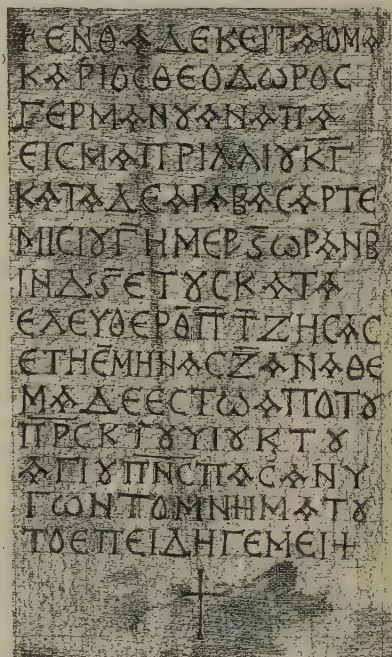 +ΕΝΘΑΔΕΚΕΙΤΑΙΟΜΑ
ΚΑΡΙΟϹΘΕΟΔΩΡΟϹ
ΓΕΡΜΑΝȢΑΝΑΠΑ
ΕΙϹΜΑΠΡΙΛΛΙȢΚΓ̅
ΚΑΤΑΔΕΑΡΑΒΑϹΑΡΤΕ
ΜΙϹΙȢΓ̅ΗΜΕΡϚ̅ΩΡΑΝΒ
ΙΝΔϚ̅ΕΤȢϹΚΑΤΑ
ΕΛΕΥΘΕΡΘ̅Π̅Τ̅ΖΗϹΑϹ
ΕΤΗΕ̅ΜΗΝΑϹΖ̅ΑΝΑΘΕ
ΜΑΔΕΕϹΤΩΑΠΟΤȢ
Π̅Ρ̅Ϲ̅ΚΤȢΥΙȢΚΤȢ
ΑΓΙȢΠ̅Ν̅Ϲ̅ΠΑϹΑΝΥ
ΓΩΝΤΟΜΝΗΜΑΤȢ
ΤΟΕΠΕΙΔΗΓΕΜΕΙ+
†